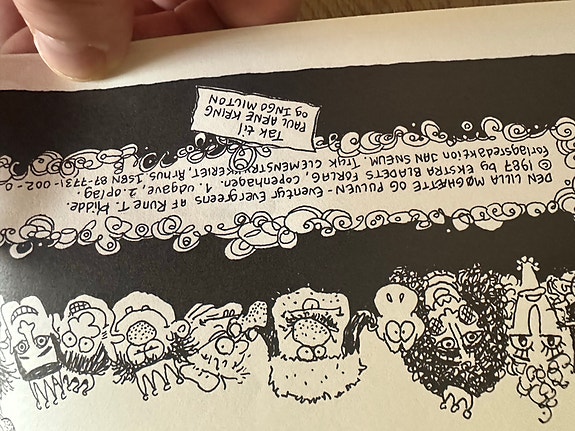 DEN LILLA MØGHÆTTE OG PULVEN - Eventyr Evergreens AF Rune T. Kidde.
© 1987 by EKSTRA BLADETS FORLAG, Copenhagen. 1. udgave, 2. oplag.
Forlagsredaktion JAN SNEUM. Tryk CLEMENSTRYKKERIET, ÅRHUS. ISBN 87-7731-002-0
Tak til
PAUL ARNE KRING
og INGO MILTON